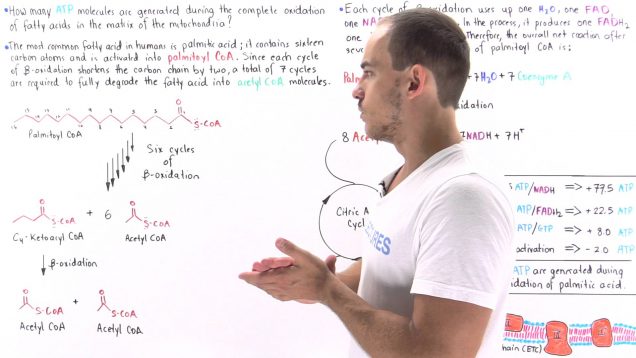 • How many ATP molecules are generated during the complete oxidation
of fatty acids in the matrix of the mitochondria?
• The most common fatty acid in humans is palmitic acid; it contains sixteen
carbon atoms and is activated into palmitoyl CoA. Since each cycle
of β-oxidation shortens the carbon chain by two, a total of 7 cycles
are required to fully degrade the fatty acid into acetyl CoA molecules.
O
S-CoA
Palmitoyl CoA
Six cycles
of
β-oxidation
O
S-CoA
+ 6
O
S-CoA
C4-Ketoacyl CoA
Acetyl CoA
β-oxidation
O
S-CoA
+
O
S-CoA
Acetyl CoA
Acetyl CoA
• Each cycle of β-oxidation uses up one H2O, one FAD,
one In the process, it produces one FADH2
one Therefore, the overall net reaction after
of palmitoyl CoA is:
+ 7H2O + 7 Coenzyme A
8 7NADH + 7H+
Citric A
Cycl
URES
ATP/NADH => +77.5 ATP
ATP/FADH2 => +22.5 ATP
ATP/GTP => +8.0 ATP
activation => -2.0 ATP
ATP are generated during
of palmitic acid.
III
(ETC)